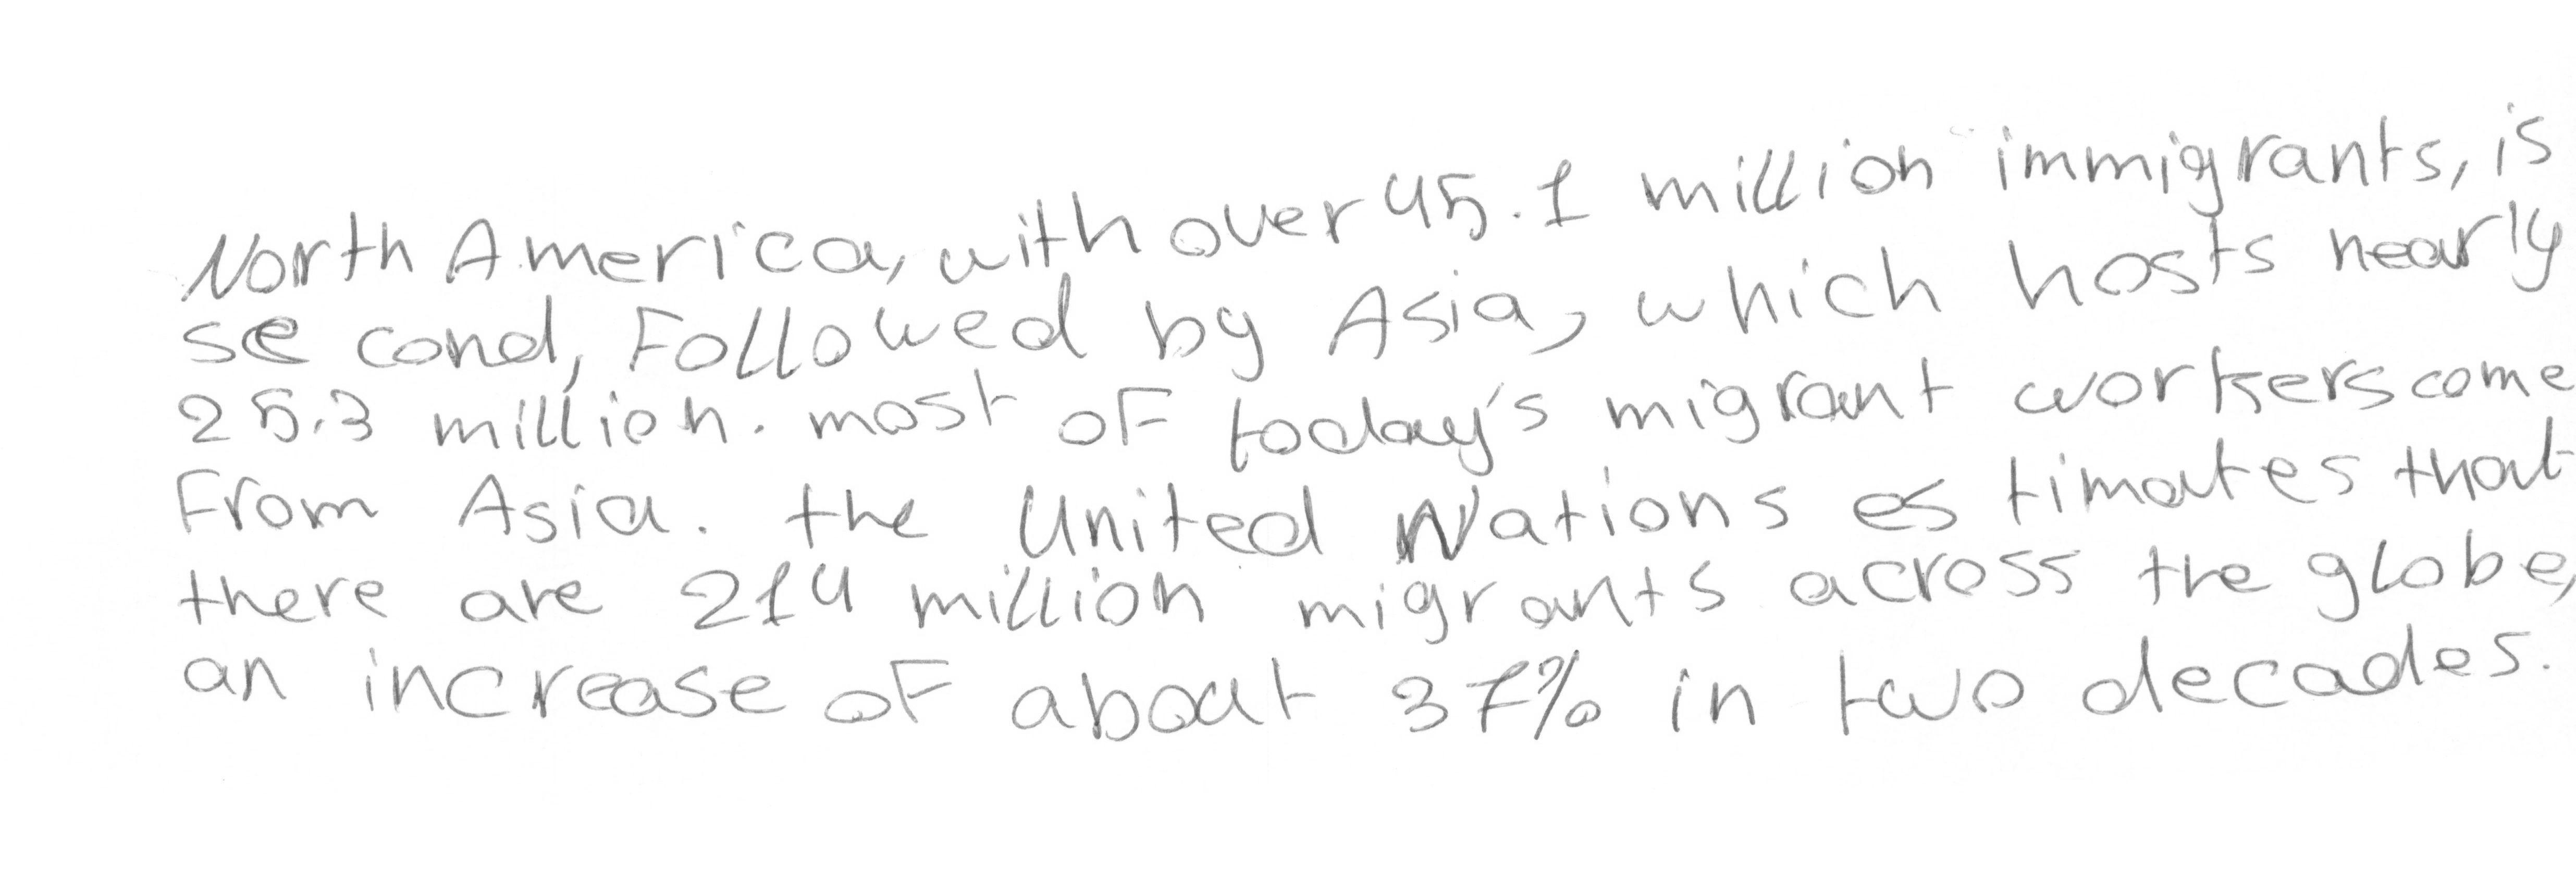 North America, with over 45.1 million immigrants, is
second, Followed by Asia, which hosts nearly
25.3 million. most of today's migrant workers come
From Asia. the United Nations estimates that
there are 214 million migrants across the globe,
an increase of about 37% in two decades.